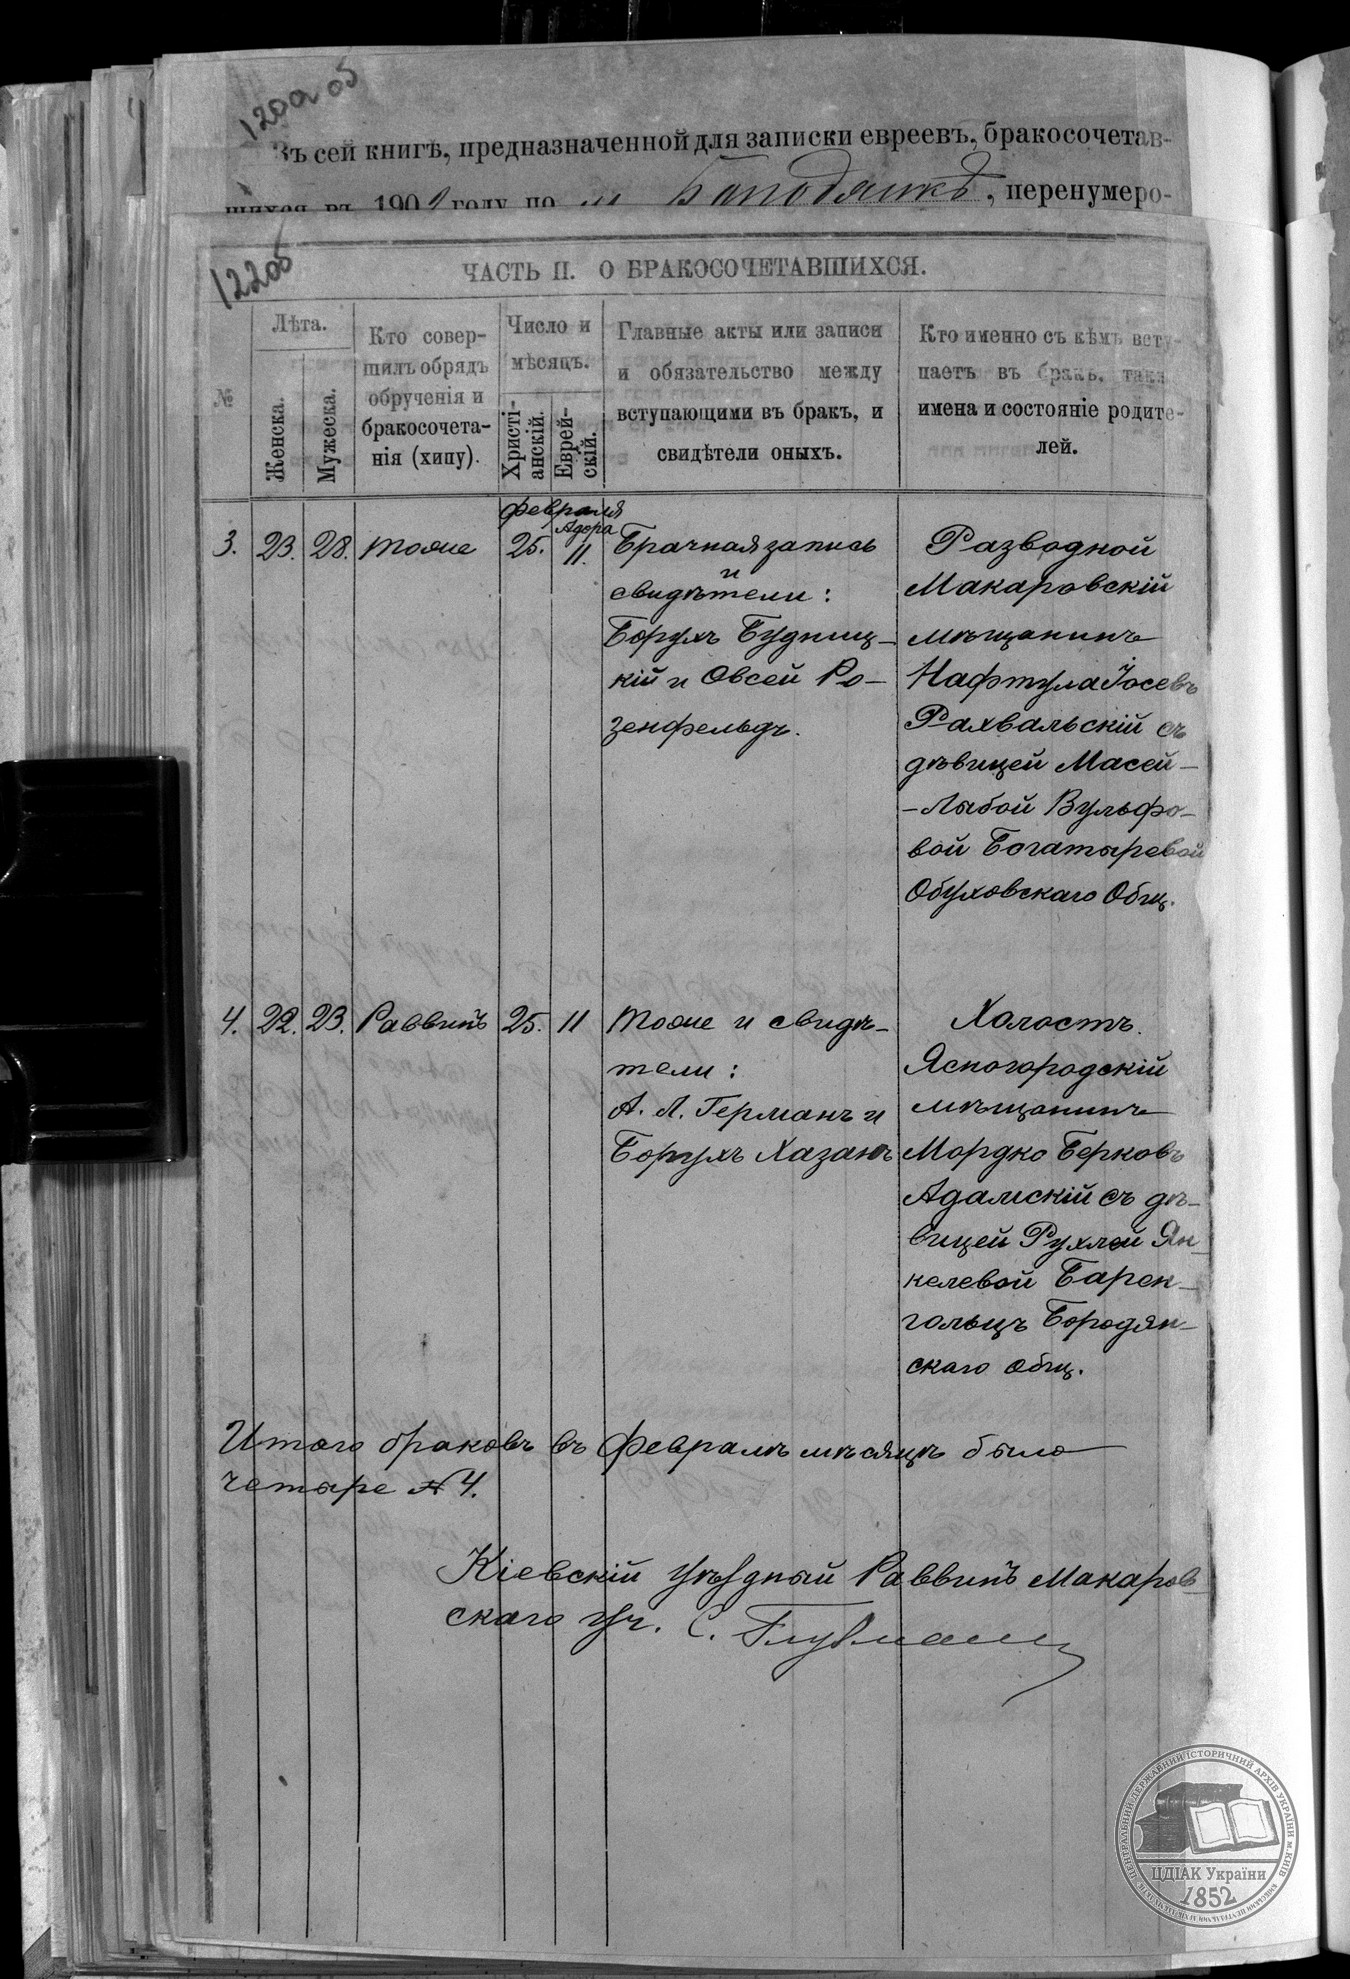 120а об
Въ сей книгѣ, предназначенной для записки евреевъ, бракосочетав-
шихся въ 190 году по м Бородянкѣ, перенумеро-
122об
ЧАСТЬ II. О БРАКОСОЧЕТАВШИХСЯ.
№
Лѣта.
Женска.
Мужеска.
Кто совер-
шилъ обрядъ
обрученія и
бракосочета-
нія (хипу).
Число и
мѣсяцъ.
Христі-
анскій.
Еврей-
скій.
Главные акты или записи
и обязательство между
вступающими въ бракъ, и
свидѣтели оныхъ.
Кто именно съ кѣмъ всту-
паетъ въ бракъ, такъ
имена и состояніе родите-
лей.
февраля
Адора
3. 23. 28. тоже 25. 11. Брачная запись
и
свидѣтели:
Борухъ Будниц-
кій и Овсей Ро-
зенфельдъ.
Разводной
Макаровскій
мѣщанинъ
Нафтула Іосевъ
Рахвальскій съ
дѣвицей Масей-
-Лыбой Вульфо-
вой Богатыревой
Обуховскаго Общ.
4. 22. 23. Раввинъ 25. 11 Тоже и свидѣ-
тели:
А. Л. Германъ и
Борухъ Хазанъ
Холостъ.
Ясногородскій
мѣщанинъ
Мордко Берковъ
Адамскій съ дѣ-
вицей Рухлей Ян-
келевой Барен-
гольцъ Бородян-
скаго общ.
Итого браковъ въ Февралѣ мѣсяцѣ было
четыре № 4.
Кіевскій уѣздный Раввинъ Макаров-
скаго уч. С. Глузманъ
ЦЕНТРАЛЬНИЙ ДЕРЖАВНИЙ ІСТОРИЧНИЙ АРХІВ УКРАЇНИ м. КИЇВ
ЦДІАК України
1852